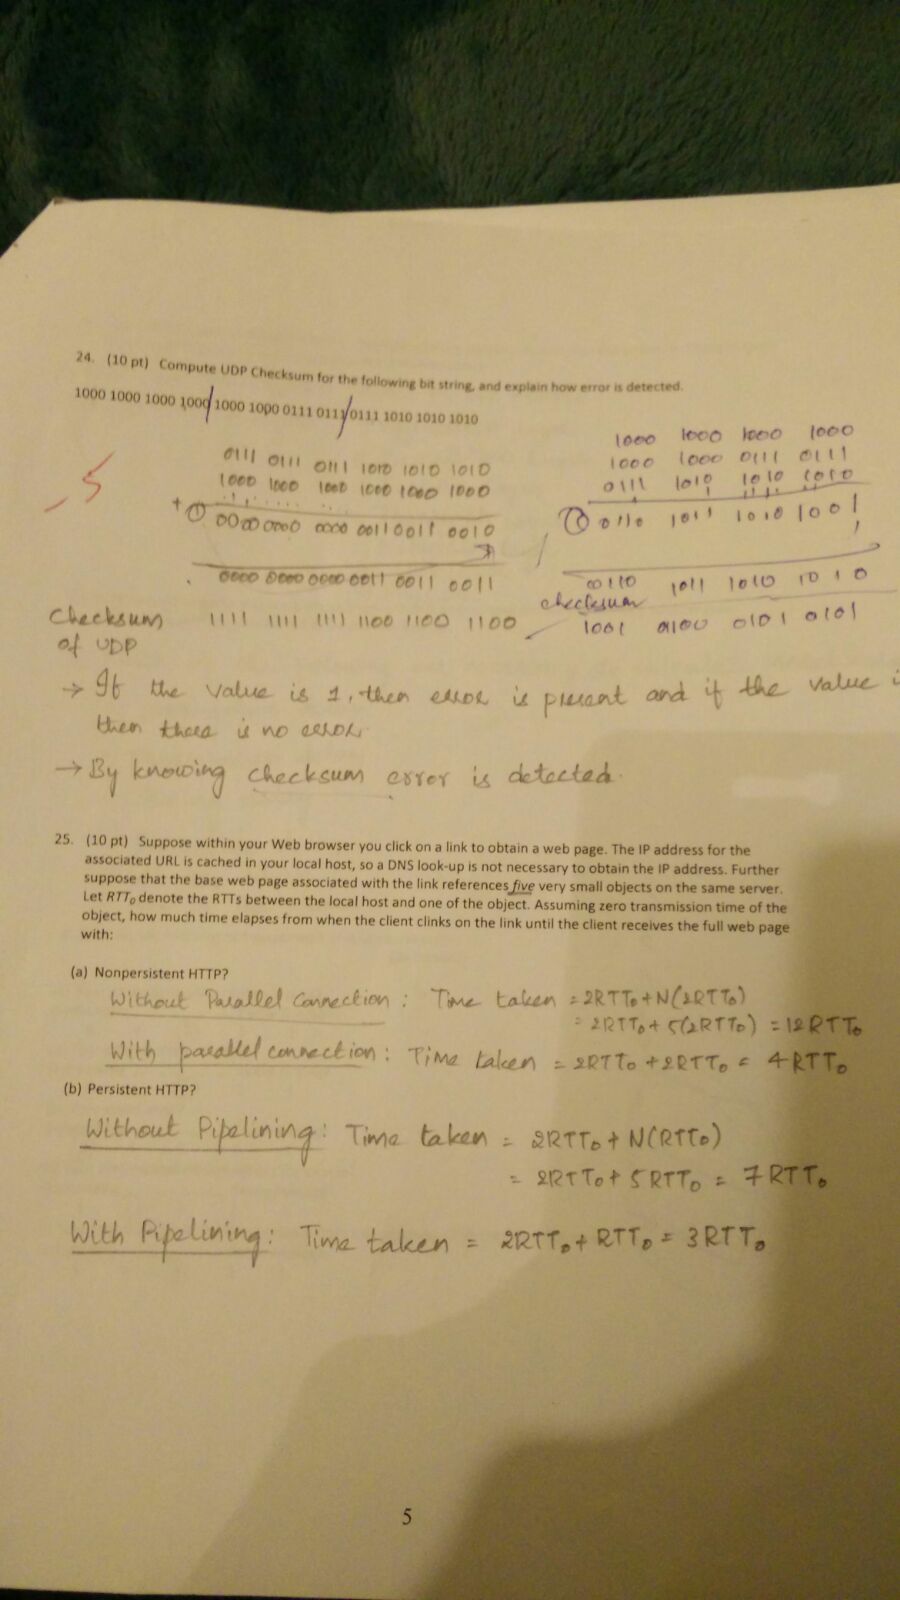 24. (10 pt) Compute UDP Checksum for the following bit string, and explain how error is detected.
1000 1000 1000 1000/1000 1000 0111 0111/0111 1010 1010 1010
1000 1000 1000 1000
1000 1000 0111 0111
0111 1010 1010 1010
① 0110 1011 1010 1001
1
00110 1011 1010 1010
checksum
1001 0100 0101 0101
-5
0111 0111 0111 1010 1010 1010
1000 1000 1000 1000 1000 1000
+ ① 0000 0000 0000 0011 0011 0010
0000 0000 0000 0011 0011 0011
Checksum 1111 1111 1111 1100 1100 1100
of UDP
→ If the value is 1, then error is present and if the value
then there is no error.
→ By knowing checksum error is detected.
25. (10 pt) Suppose within your Web browser you click on a link to obtain a web page. The IP address for the
associated URL is cached in your local host, so a DNS look-up is not necessary to obtain the IP address. Further
suppose that the base web page associated with the link references five very small objects on the same server.
Let RTT₀ denote the RTTs between the local host and one of the object. Assuming zero transmission time of the
object, how much time elapses from when the client clinks on the link until the client receives the full web page
with:
(a) Nonpersistent HTTP?
Without Parallel Connection : Time taken = 2RTT₀ + N(2RTT₀)
= 2RTT₀ + 5(2RTT₀) = 12RTT₀
With parallel connection : Time taken = 2RTT₀ + 2RTT₀ = 4RTT₀
(b) Persistent HTTP?
Without Pipelining : Time taken = 2RTT₀ + N(RTT₀)
= 2RTT₀ + 5RTT₀ = 7RTT₀
With Pipelining : Time taken = 2RTT₀ + RTT₀ = 3RTT₀
5